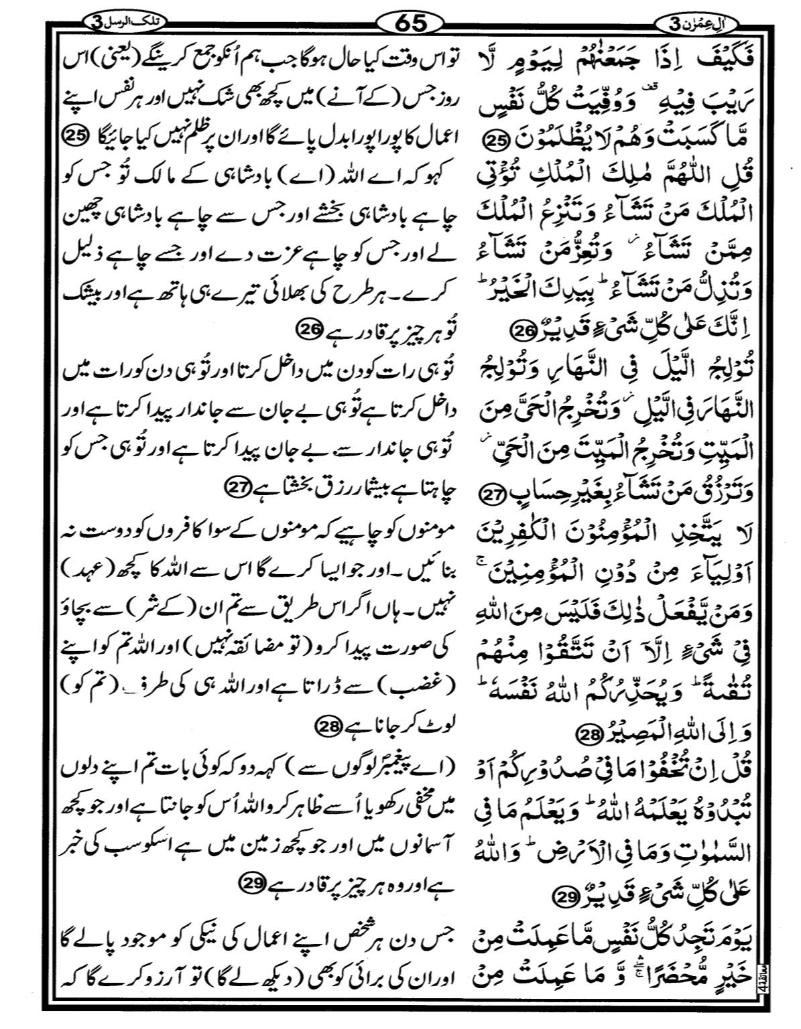 اٰلِ عِمْرٰن 3
65
تلك الرسل 3
فَكَيْفَ اِذَا جَمَعْنٰهُمْ لِيَوْمٍ لَّا
رَيْبَ فِيْهِ ۗ وَوُفِّيَتْ كُلُّ نَفْسٍ
مَّا كَسَبَتْ وَهُمْ لَا يُظْلَمُوْنَ 25
قُلِ اللّٰهُمَّ مٰلِكَ الْمُلْكِ تُؤْتِى
الْمُلْكَ مَنْ تَشَآءُ وَتَنْزِعُ الْمُلْكَ
مِمَّنْ تَشَآءُ ۡ وَتُعِزُّ مَنْ تَشَآءُ
وَتُذِلُّ مَنْ تَشَآءُ ؕ بِيَدِكَ الْخَيْرُ ؕ
اِنَّكَ عَلٰى كُلِّ شَىْءٍ قَدِيْرٌ 26
تُوْلِجُ الَّيْلَ فِى النَّهَارِ وَتُوْلِجُ
النَّهَارَ فِى الَّيْلِ ۡ وَتُخْرِجُ الْحَىَّ مِنَ
الْمَيِّتِ وَتُخْرِجُ الْمَيِّتَ مِنَ الْحَىِّ ۡ
وَتَرْزُقُ مَنْ تَشَآءُ بِغَيْرِ حِسَابٍ 27
لَا يَتَّخِذِ الْمُؤْمِنُوْنَ الْكٰفِرِيْنَ
اَوْلِيَآءَ مِنْ دُوْنِ الْمُؤْمِنِيْنَ ۚ
وَمَنْ يَّفْعَلْ ذٰلِكَ فَلَيْسَ مِنَ اللّٰهِ
فِىْ شَىْءٍ اِلَّاۤ اَنْ تَتَّقُوْا مِنْهُمْ
تُقٰىةً ؕ وَيُحَذِّرُكُمُ اللّٰهُ نَفْسَهٗ ؕ
وَاِلَى اللّٰهِ الْمَصِيْرُ 28
قُلْ اِنْ تُخْفُوْا مَا فِىْ صُدُوْرِكُمْ اَوْ
تُبْدُوْهُ يَعْلَمْهُ اللّٰهُ ؕ وَيَعْلَمُ مَا فِى
السَّمٰوٰتِ وَمَا فِى الْاَرْضِ ؕ وَاللّٰهُ
عَلٰى كُلِّ شَىْءٍ قَدِيْرٌ 29
يَوْمَ تَجِدُ كُلُّ نَفْسٍ مَّا عَمِلَتْ مِنْ
خَيْرٍ مُّحْضَرًا ۛۚ وَّ مَا عَمِلَتْ مِنْ
تو اس وقت کیا حال ہوگا جب ہم اُنکو جمع کرینگے (یعنی) اس
روز جس (کے آنے) میں کچھ بھی شک نہیں اور ہر نفس اپنے
اعمال کا پورا پورا بدل پائے گا اور ان پر ظلم نہیں کیا جائیگا 25
کہو کہ اے اللہ (اے) بادشاہی کے مالک تُو جس کو
چاہے بادشاہی بخشے اور جس سے چاہے بادشاہی چھین
لے اور جس کو چاہے عزت دے اور جسے چاہے ذلیل
کرے۔ ہر طرح کی بھلائی تیرے ہی ہاتھ ہے اور بیشک
تُو ہر چیز پر قادر ہے 26
تُو ہی رات کو دن میں داخل کرتا اور تُو ہی دن کو رات میں
داخل کرتا ہے تُو ہی بے جان سے جاندار پیدا کرتا ہے اور
تُو ہی جاندار سے بے جان پیدا کرتا ہے اور تُو ہی جس کو
چاہتا ہے بیشمار رزق بخشتا ہے 27
مومنوں کو چاہیے کہ مومنوں کے سوا کافروں کو دوست نہ
بنائیں۔ اور جو ایسا کرے گا اس سے اللہ کا کچھ (عہد)
نہیں۔ ہاں اگر اس طریق سے تم ان (کے شر) سے بچاؤ
کی صورت پیدا کرو (تو مضائقہ نہیں) اور اللہ تم کو اپنے
(غضب) سے ڈراتا ہے اور اللہ ہی کی طرف (تم کو)
لوٹ کر جانا ہے 28
(اے پیغمبرؐ لوگوں سے) کہہ دو کہ کوئی بات تم اپنے دلوں
میں مخفی رکھو یا اُسے ظاہر کرو اللہ اُس کو جانتا ہے اور جو کچھ
آسمانوں میں اور جو کچھ زمین میں ہے اسکو سب کی خبر
ہے اور وہ ہر چیز پر قادر ہے 29
جس دن ہر شخص اپنے اعمال کی نیکی کو موجود پالے گا
اور ان کی برائی کو بھی (دیکھ لے گا) تو آرزو کرے گا کہ